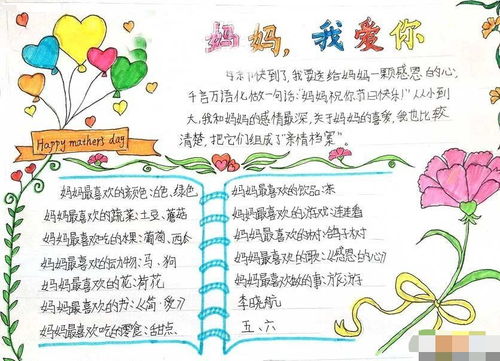 妈妈，我爱你
Happy mather's day
快到了，我要送给妈妈一颗感恩的心，
千言万语化做一句话："妈妈祝你节日快乐！"从小到
大，我和妈妈的感情最深，关于妈妈的喜爱，我也比较
清楚，把它们组成了"亲情档案"。
妈妈最喜欢的颜色：白色、绿色
妈妈最喜欢的蔬菜：土豆、蘑菇
妈妈最喜欢吃的水果：葡萄、西瓜
妈妈最喜欢的动物：马·狗
妈妈最喜欢的花：荷花
妈妈最喜欢的书：《简·爱》
妈妈最喜欢吃的零食：甜点
妈妈最喜欢的饮品：茶
妈妈最喜欢的游戏：连连看
妈妈最喜欢的树：鸽子树
妈妈最喜欢的歌：《感恩的心》
妈妈最喜欢做的事：旅游
李晓航
五、六